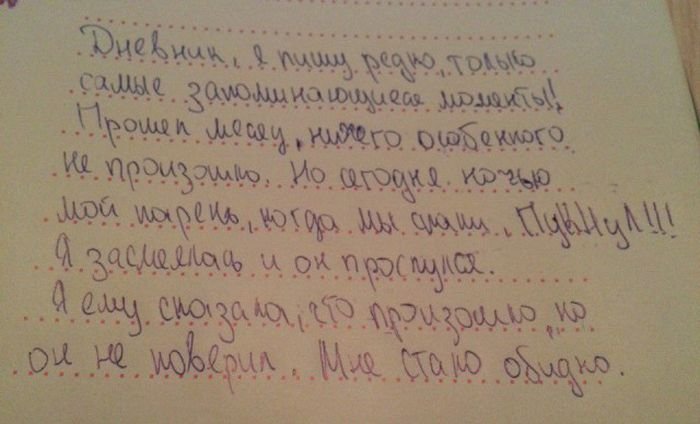 Дневник, я пишу редко, только
самые запоминающиеся моменты!
Прошел месяц, ничего особенного
не произошло. Но сегодня ночью
мой парень, когда мы спали, ПуКНуЛ!!!
Я засмеялась и он проснулся.
Я ему сказала, что произошло, но
он не поверил. Мне стало обидно.